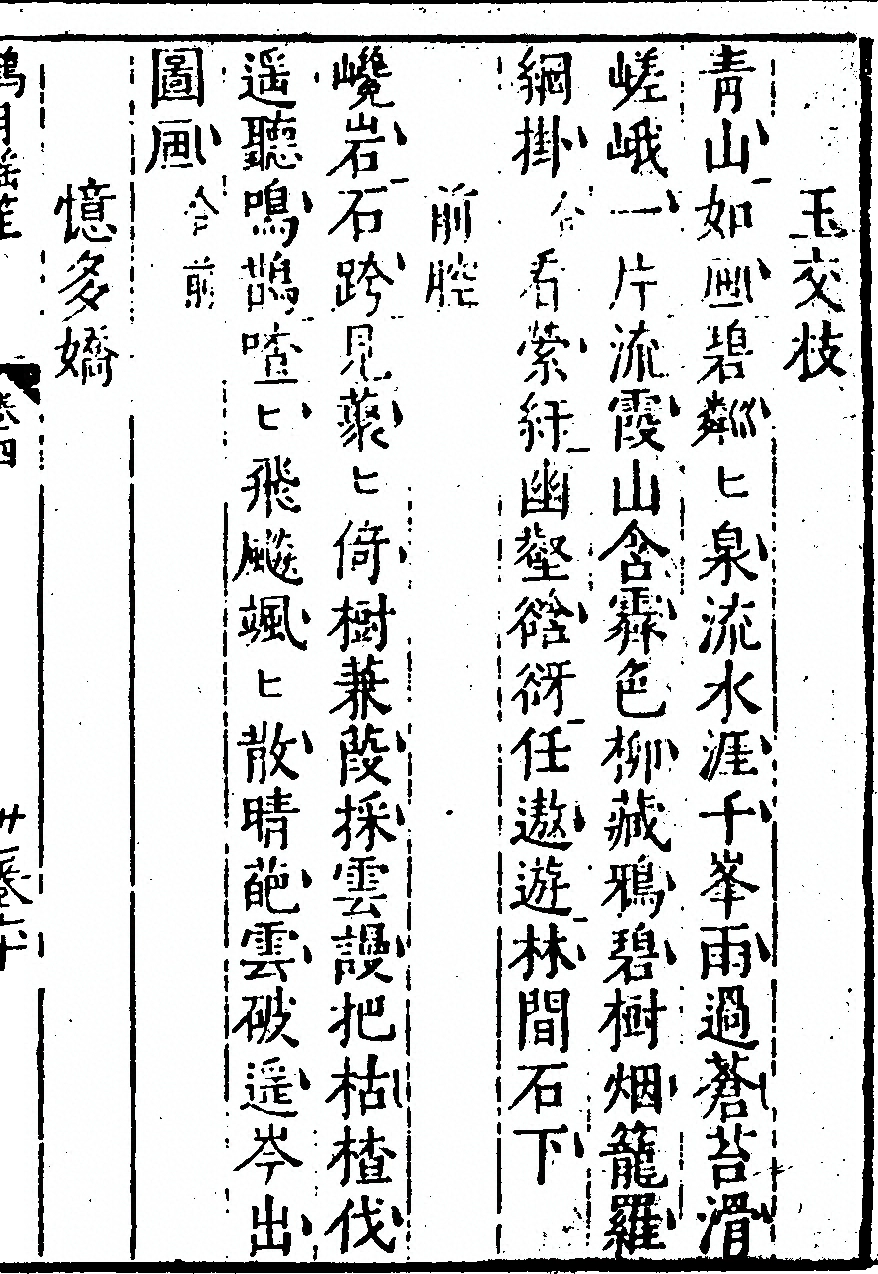 玉交枝
青山如画碧粼匕泉流水涯千峯雨過蒼苔滑
嵯峨一片流霞山含霽色柳藏鴉碧樹烟籠羅
綱掛合看縈紆幽壑谽谺任遨遊林間石下
前腔
巉岩石跨見藂匕倚樹蒹葭採雲謾把枯楂伐
遥聽鳴鵲喳匕飛飈颯匕散晴葩雲破遥岑出
圖画合前
憶多嬌
卷四